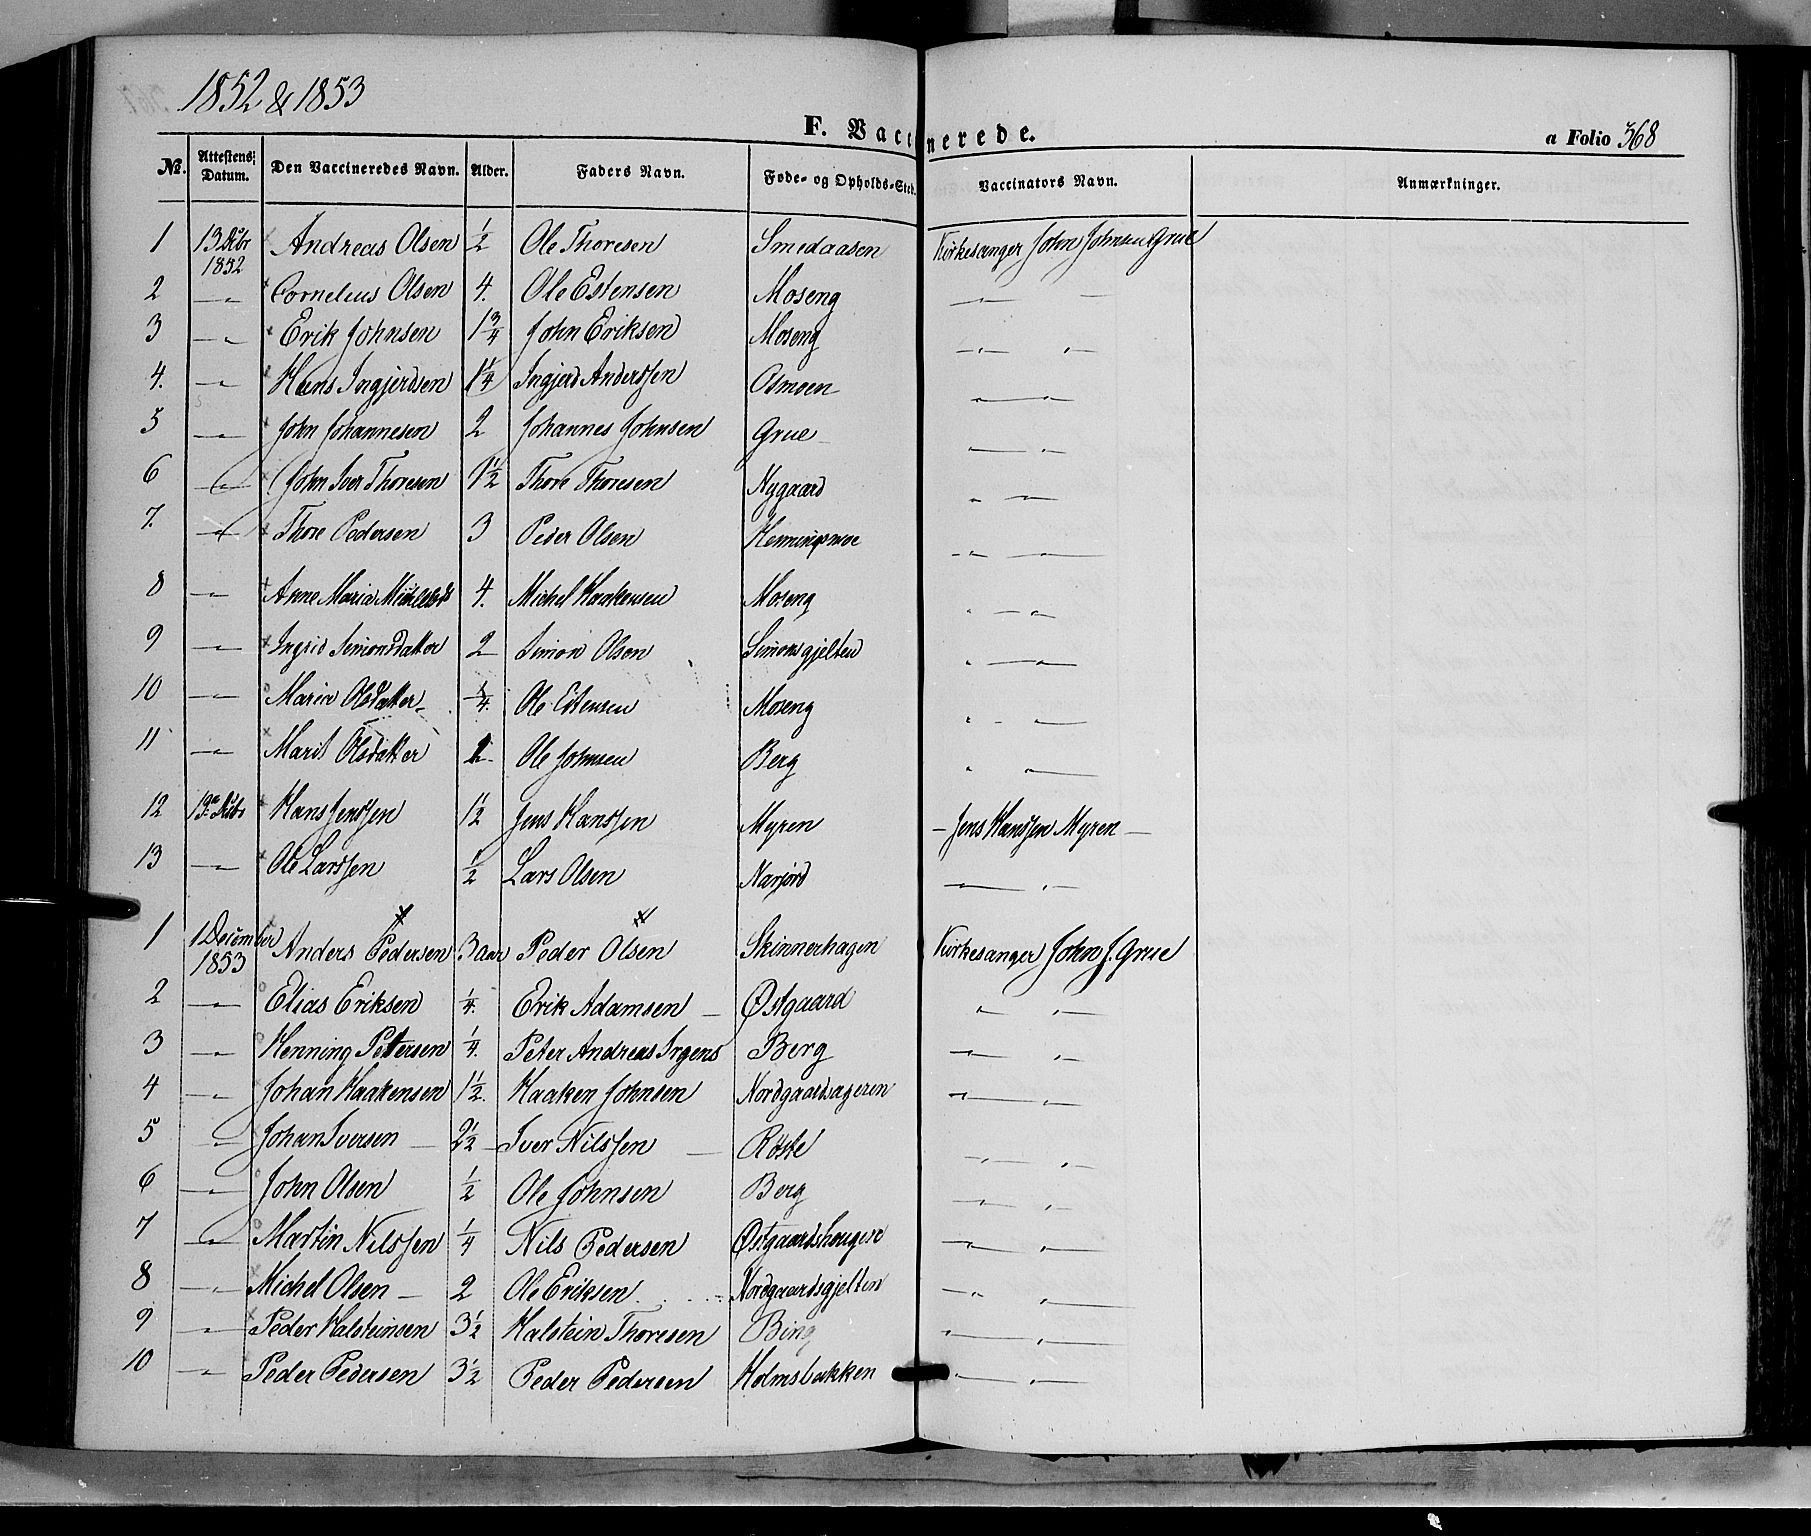 1852 & 1853
F. Vaccinerede.
a Folio 368
No. Attestens Datum. Den Vaccineredes Navn. Alder. Faders Navn. Føde- og Opholds-Sted. Vaccinators Navn. Anmærkninger.
1 13 Decbr 1852 Andreas Olsen 1/2 Ole Thoresen Smedaasen Kirkesanger John Johnsen Grue
2 —"— Cornelius Olsen 4. Ole Estensen Moseng —"— —
3 —"— Erik Johnsen 1 3/4 John Eriksen Moseng —"— "—
4. —"— Hans Ingjerdsen 1 1/4 Ingjerd Anderssen Osmoen "— —"—
5 —"— John Johannesen 2 Johannes Johnsen Grue "— "—
6 —"— John Iver Thoresen 1 1/2 Thore Thoresen Nygaard " —"—
7. —"— Thore Pedersen 3 Peder Olsen Hemingsmoe —" —"—
8 —"— Anne Maria Michelsd 4. Michel Haakensen Moseng " —"—
9 —"— Ingrid Simonsdatter 2 Simon Olsen Simonsgjelten " —"—
10 —"— Maria Olsdatter 1/4. Ole Estensen Moseng " - —"—
11 —"— Marit Olsdatter 1 Ole Johnsen Berg " —"—
12 19de Decbr Hans Jenssen 1 1/2 Jens Hanssen Myren — Jens Hanssen Myren —
13 —"— Ole Larssen 1/2 Lars Olsen Narjord —"— "—
1 1 December 1853 Anders Pedersen 3 aar Peder Olsen Skinnerhagen Kirkesanger John J. Grue
2 —"— Elias Eriksen 1/4. Erik Adamsen — Østgaard "— "—
3 —"— Henning Petersen 1/4. Peter Andreas Irgens Berg —"— "—
4 —"— Johan Haakensen 1 1/2. Haaken Johnsen Nordgaardsageren —"— "—
5 —"— Johan Iversen — 2 1/2 Iver Nilssen — Røste —"— "—
6 —"— John Olsen 1/2 Ole Johnsen Berg —"— "—
7 —"— Martin Nilssen 1/4 Nils Pedersen Østgaardshougen —"— "—
8 —"— Michel Olsen — 2 Ole Eriksen Nordgaardsgjelten —"— "—
9 —"— Peder Halsteinsen 3 1/2 Halstein Thoresen Bing "— "—
10 —"— Peder Pedersen 3 1/2 Peder Pedersen Holmsbakken "— "—